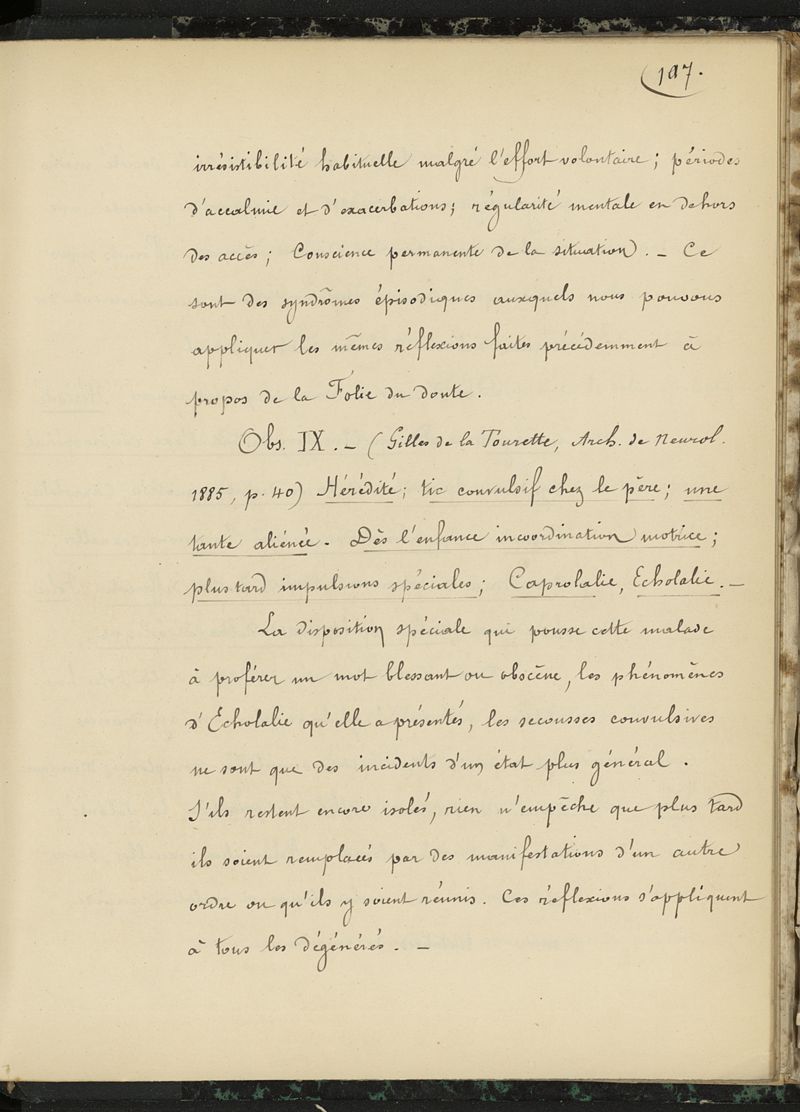 197.
irrésistibilité habituelle malgré l'effort volontaire; périodes
d'accalmie et d'exacerbations; régularité mentale en dehors
des accès; Conscience permanente de la situation. — Ce
sont des syndrômes épisodiques auxquels nous pouvons
appliquer les mêmes réflexions faites précédemment à
propos de la Folie du doute.
Obs. IX. — (Gilles de la Tourette, Arch. de Neurol.
1885, p. 40) Hérédité; tic convulsif chez le père; une
tante aliénée. Dès l'enfance incoordination motrice;
plus tard impulsions spéciales; Caprolalie, Echolalie. —
La disposition spéciale qui pousse cette malade
à proférer un mot blessant ou obscène, les phénomènes
d'Echolalie qu'elle a présentés, les secousses convulsives
ne sont que des incidents d'un état plus général.
S'ils restent encore isolés, rien n'empêche que plus tard
ils soient remplacés par des manifestations d'un autre
ordre ou qu'ils y soient réunis. Ces réflexions s'appliquent
à tous les dégénérés. —